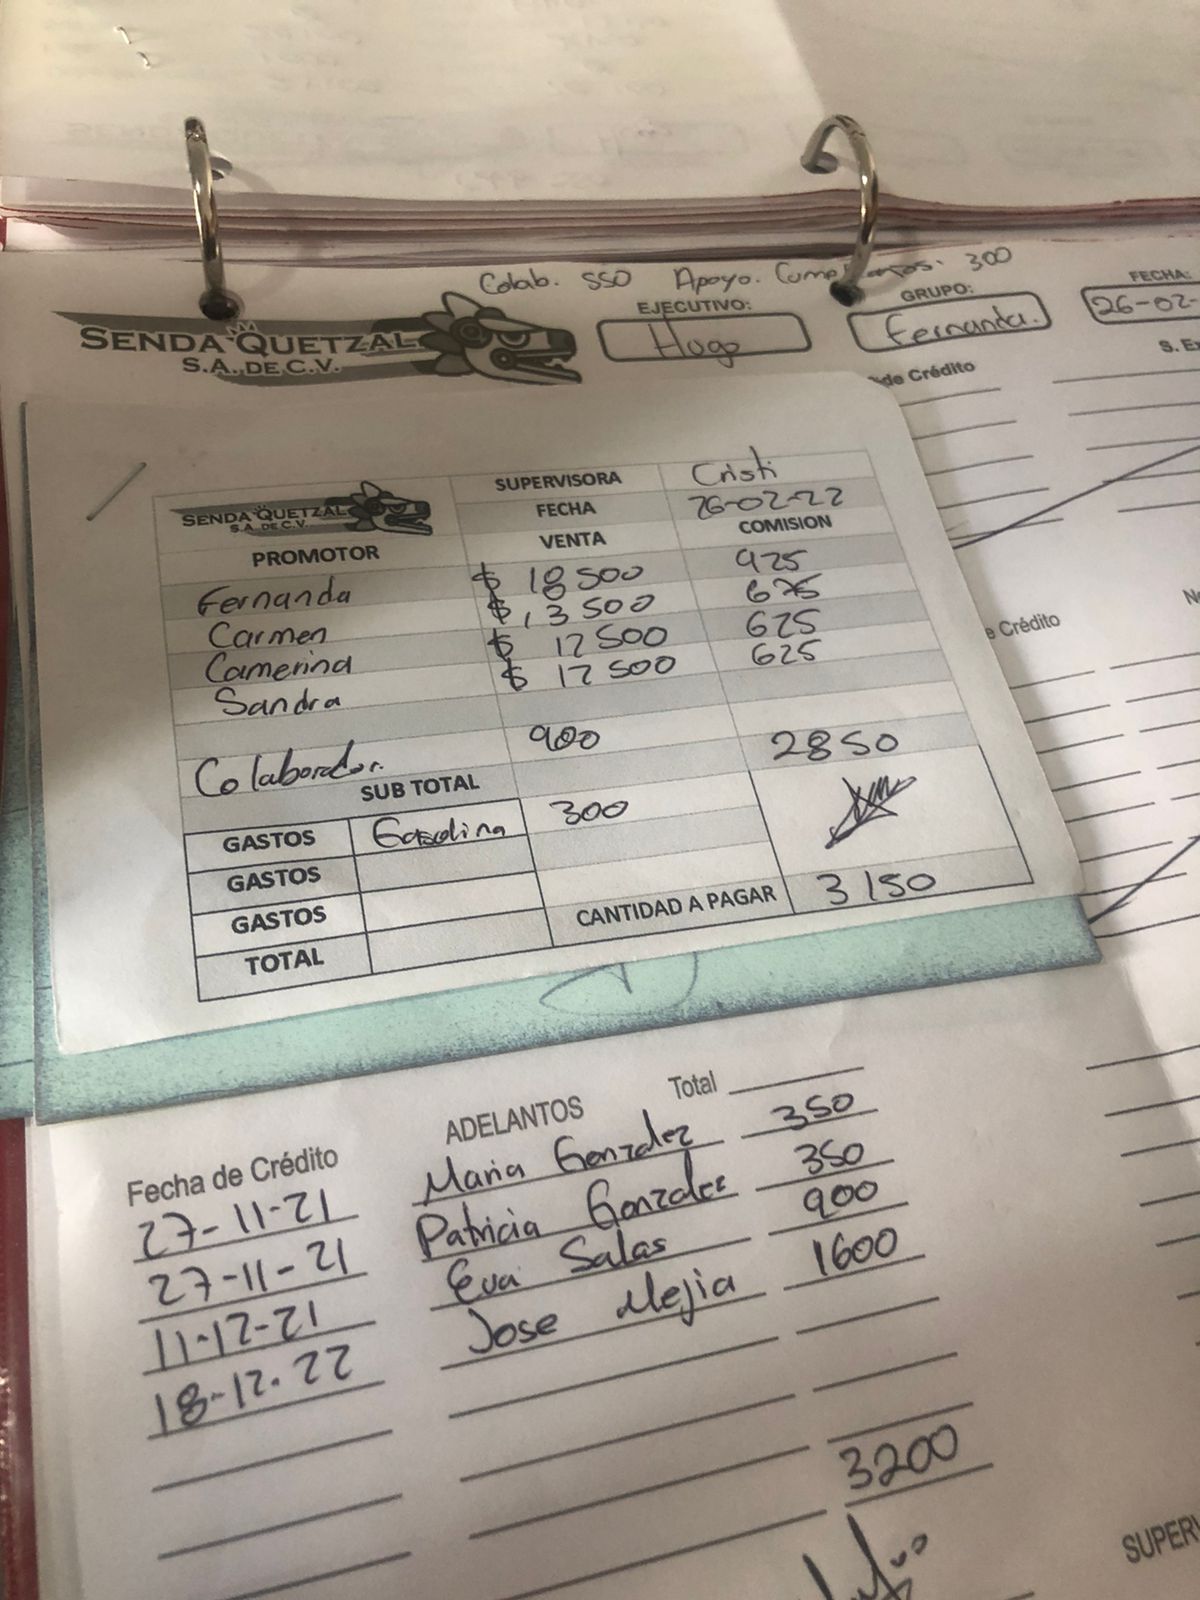 Colab. 550 Apoyo. Cumpleaños. 300
SENDA QUETZAL
S.A. DE C.V.
EJECUTIVO:
Hugo
GRUPO:
Fernanda.
FECHA:
26-02-
de Crédito
S. E
SENDA QUETZAL
S.A. DE C.V.
SUPERVISORA Cristi
FECHA 26-02-22
PROMOTOR VENTA COMISION
Fernanda $ 18500 925
Carmen $ 13500 675
Camerina $ 12500 625
Sandra $ 12500 625
Colaborador. 900
SUB TOTAL 2850
GASTOS Gasolina 300
GASTOS
GASTOS CANTIDAD A PAGAR 3150
TOTAL
e Crédito
No
Total
Fecha de Crédito ADELANTOS
27-11-21 Maria Gonzalez 350
27-11-21 Patricia Gonzalez 350
11-12-21 Eva Salas 900
18-12-22 Jose Mejia 1600
3200
SUPERV